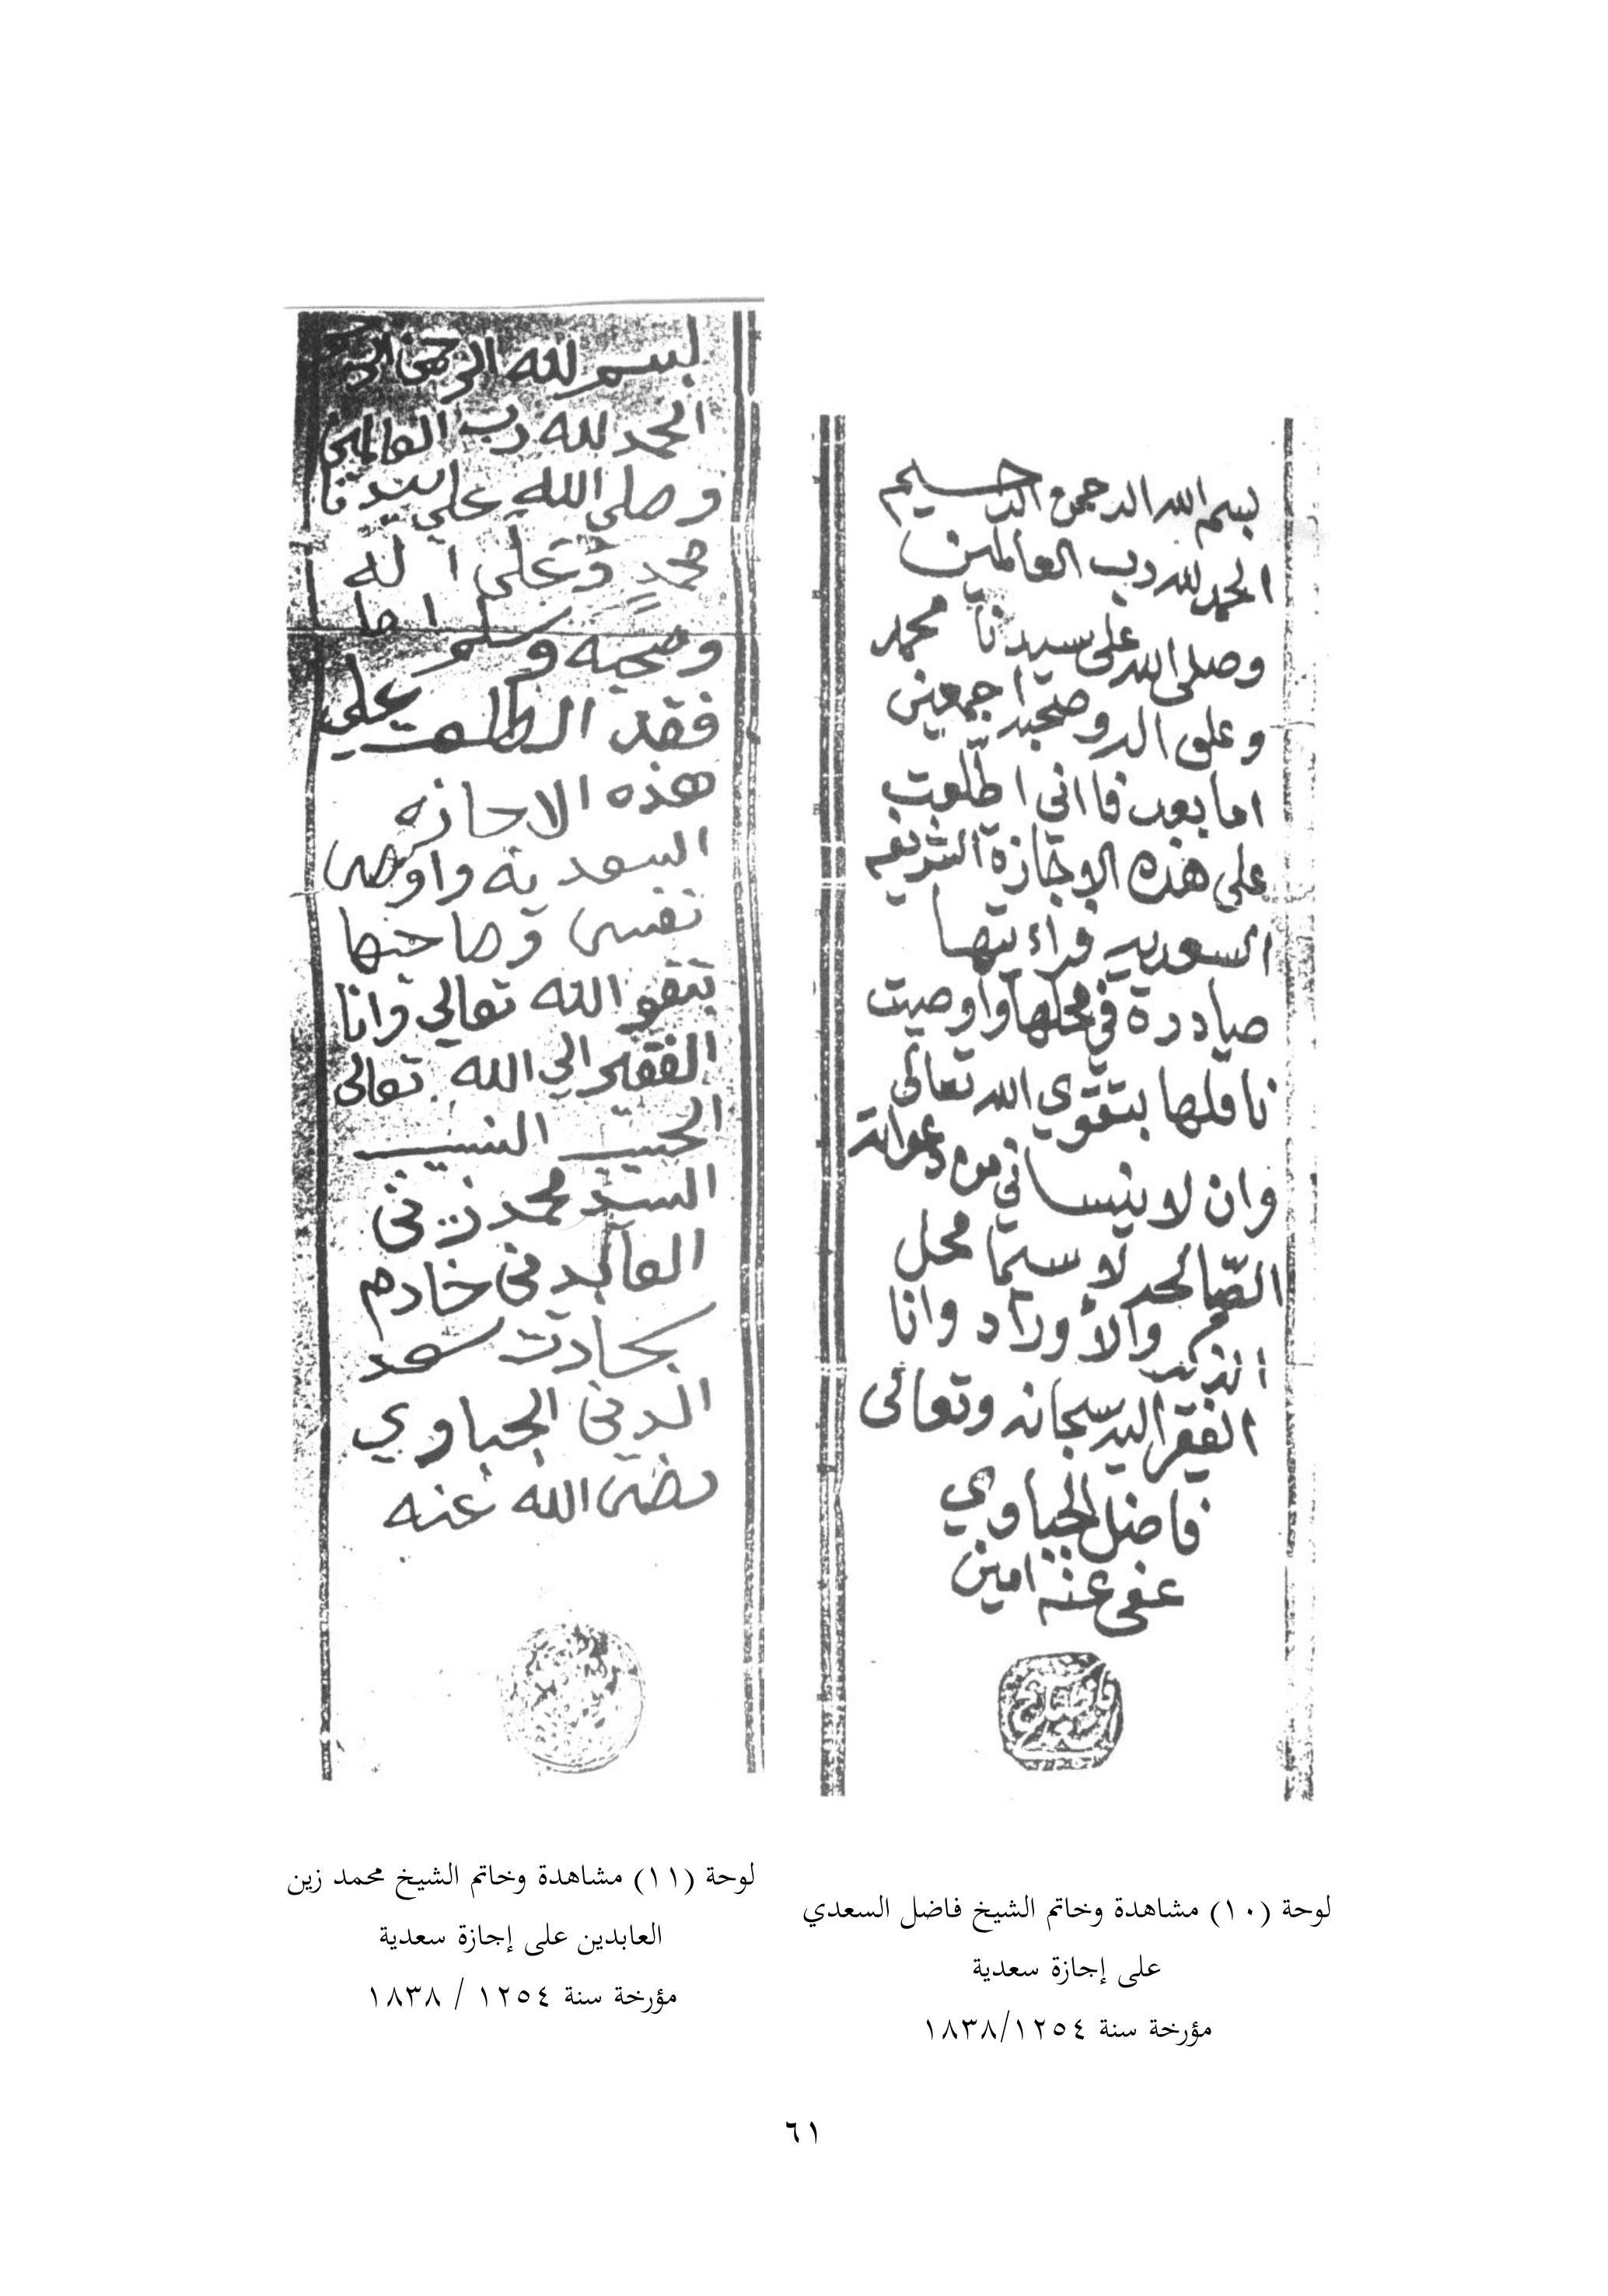 بسم الله الرحمن الرحيم
الحمد لله رب العالمين
وصلى الله على سيدنا محمد
وعلى اله وصحبه اجمعين
اما بعد فاانى اطلعت
على هذه الاجازة الشريفه
السعديه فراءيتها
صادرة فى محلها واوصيت
ناقلها بتقوي الله تعالى
وان لا ينساني من دعواته
الصالحه لا سيما محل
الذكر والأوراد وانا
الفقير اليه سبحانه وتعالى
فاضل الجباوي
عفى عنه امين
لوحة (١٠) مشاهدة وخاتم الشيخ فاضل السعدي
على إجازة سعدية
مؤرخة سنة ١٢٥٤/١٨٣٨
بسم الله الرحمن
الحمد لله رب العالمين
وصلي الله علي سيدنا
محمد وعلى اله
وصحبه وسلم اما
فقد اطلعت علي
هذه الاجازه
السعديه واوصى
نفسى وصاحبها
بتقو الله تعالي وانا
الفقير الي الله تعالى
الحسيب النسيب
السيد محمد زين
العابدين خادم
سجادت سعد
الدين الجباوي
رضى الله عنه
لوحة (١١) مشاهدة وخاتم الشيخ محمد زين
العابدين على إجازة سعدية
مؤرخة سنة ١٢٥٤ / ١٨٣٨
٦١